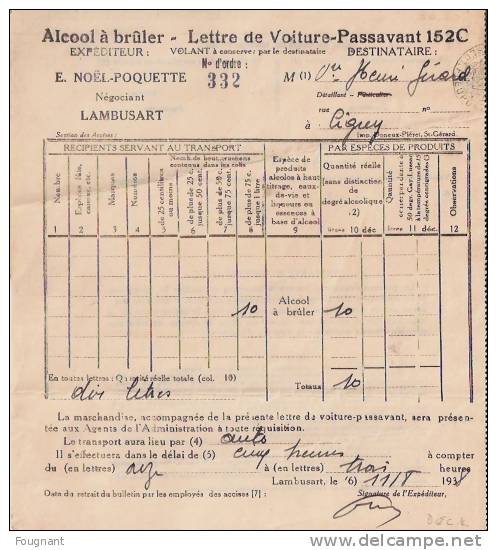 Alcool à brûler - Lettre de Voiture-Passavant 152C
EXPÉDITEUR : VOLANT à conserver par le destinataire DESTINATAIRE :
N° d'ordre :
E. NOËL-POQUETTE 332 M (1) Henri Gérard
Négociant Détaillant - Particulier
LAMBUSART rue n°
à Ligny
Section des Accises : Imp. Doneux-Piéret, St-Gérard.
RÉCIPIENTS SERVANT AU TRANSPORT PAR ESPÈCES DE PRODUITS
Nombre 1
Marques 3
Numéros 4
de 25 centilitres ou moins 5
de plus de 25 c. jusque 50 cent. 6
de plus de 50 c. jusque 75 cent. 7
de plus de 75 c. jusque 1 litre 8
Espèce de produits alcoolos à haut titrage, eaux-de-vie et liqueurs ou essences à base d'alcool 9
Quantité réelle (sans distinction de degré alcoolique 2) litres 10 déc.
litres 11 déc.
Observations 12
10 Alcool à brûler 10
En toutes lettres : Quantité réelle totale (col. 10) Totaux 10
dix litres
La marchandise, accompagnée de la présente lettre de voiture-passavant, sera présen-
tée aux Agents de l'Administration à toute réquisition.
Le transport aura lieu par (4) auto
Il s'effectuera dans le délai de (5) cinq heures à compter
du (en lettres) onze à (en lettres) trois heures
Lambusart, le (6) 11/8 1938
Date du retrait du bulletin par les employés des accises [7] : Signature de l'Expéditeur,
Fougnant
delcampe.net